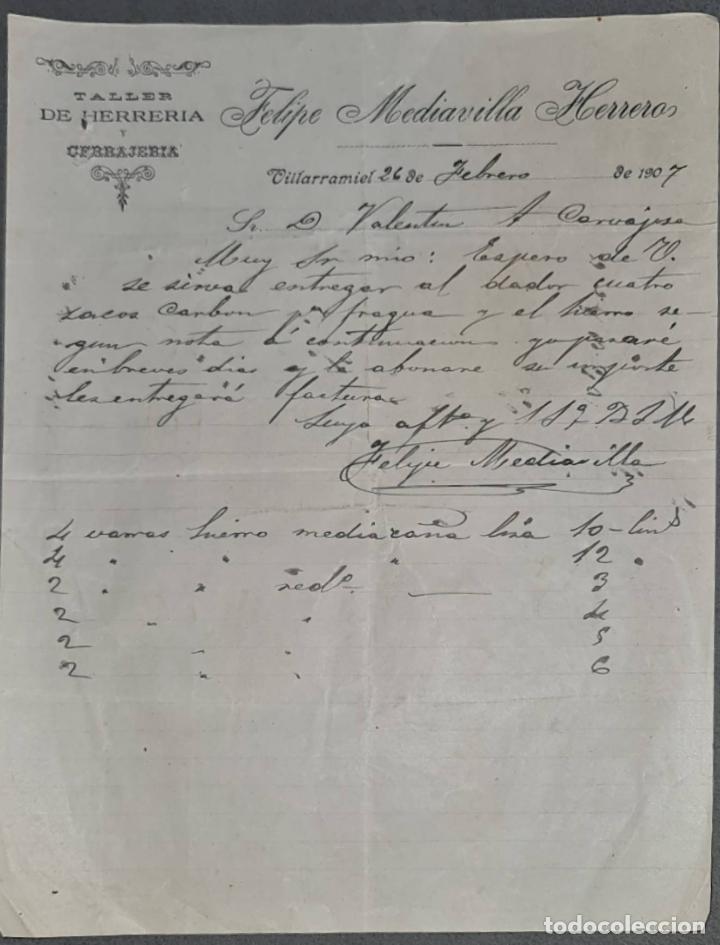 TALLER
DE HERRERIA
Y
CERRAJERIA
Felipe Mediavilla Herreros
Villarramiel 26 de Febrero de 1907
Sr. D Valentin A Carvajosa
Muy Sr mio: Espero de V.
se sirva entregar al dador cuatro
sacos carbon pa fragua y el hierro se-
gun nota á continuacion yo pasaré
en breves dias y la abonare su importe
les entregará factura
Suyo afto. y S S Q B S M
Felipe Mediavilla
4 varras hierro mediacaña lisa 10 - lins
4 " " " " 12 "
2 " " redo. — 3
2 " " 4
2 " " 5
2 " " 6
todocoleccion